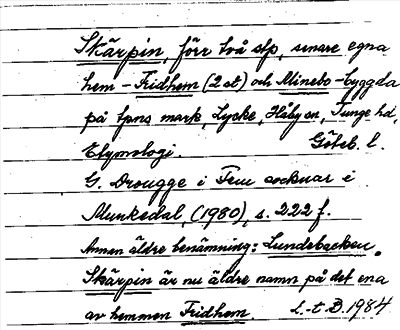 Skärpin, förr två stp, senare egna
hem - Fridhem (2 st) och Minebo - byggda
på tpns mark, Lycke, Håby sn, Tunge hd,
Etymologi. Göteb. l.
G. Drougge i Fem socknar i
Munkedal, (1980), s. 222 f.
Annan äldre benämning: Lundebacken.
Skärpin är nu äldre namn på det ena
av hemmen Fridhem. L.-t. B. 1984